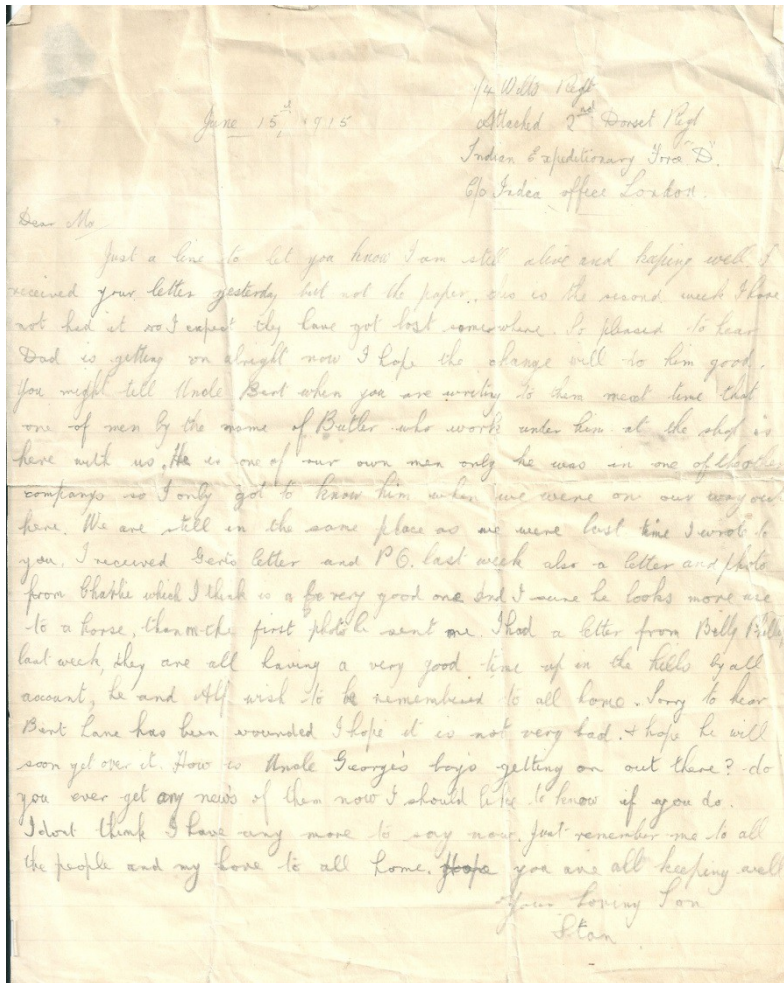 1/4 Wilts Regt
June 15th 1915
Attached 2nd Dorset Regt
Indian Expeditionary Force "D".
C/o India office London.
Dear Mo
Just a line to let you know I am still alive and keeping well. I
received your letter yesterday but not the paper, this is the second week I have
not had it so I expect they have got lost somewhere. So pleased to hear
Dad is getting on alright now I hope the change will do him good.
You might tell Uncle Bert when you are writing to them next time that
one of men by the name of Butler who work under him at the shop is
here with us. He is one of our own men only he was in one of the other
companys so I only got to know him when we were on our way out
here. We are still in the same place as we were last time I wrote to
you. I received Gerts letter and P.C. last week also a letter and photo
from Charlie which I think is a very good one and I sure he looks more use
to a horse, than on the first photo he sent me. I had a letter from Billy
last week, they are all having a very good time up in the hills by all
account, he and Alf wish to be remembered to all home. Sorry to hear
Bert Lane has been wounded I hope it is not very bad. & hope he will
soon get over it. How is Uncle George's boys getting on out there? do
you ever get any news of them now I should like to know if you do.
I dont think I have any more to say now. Just remember me to all
the people and my love to all home. Hope you are all keeping well
Your Loving Son
Stan